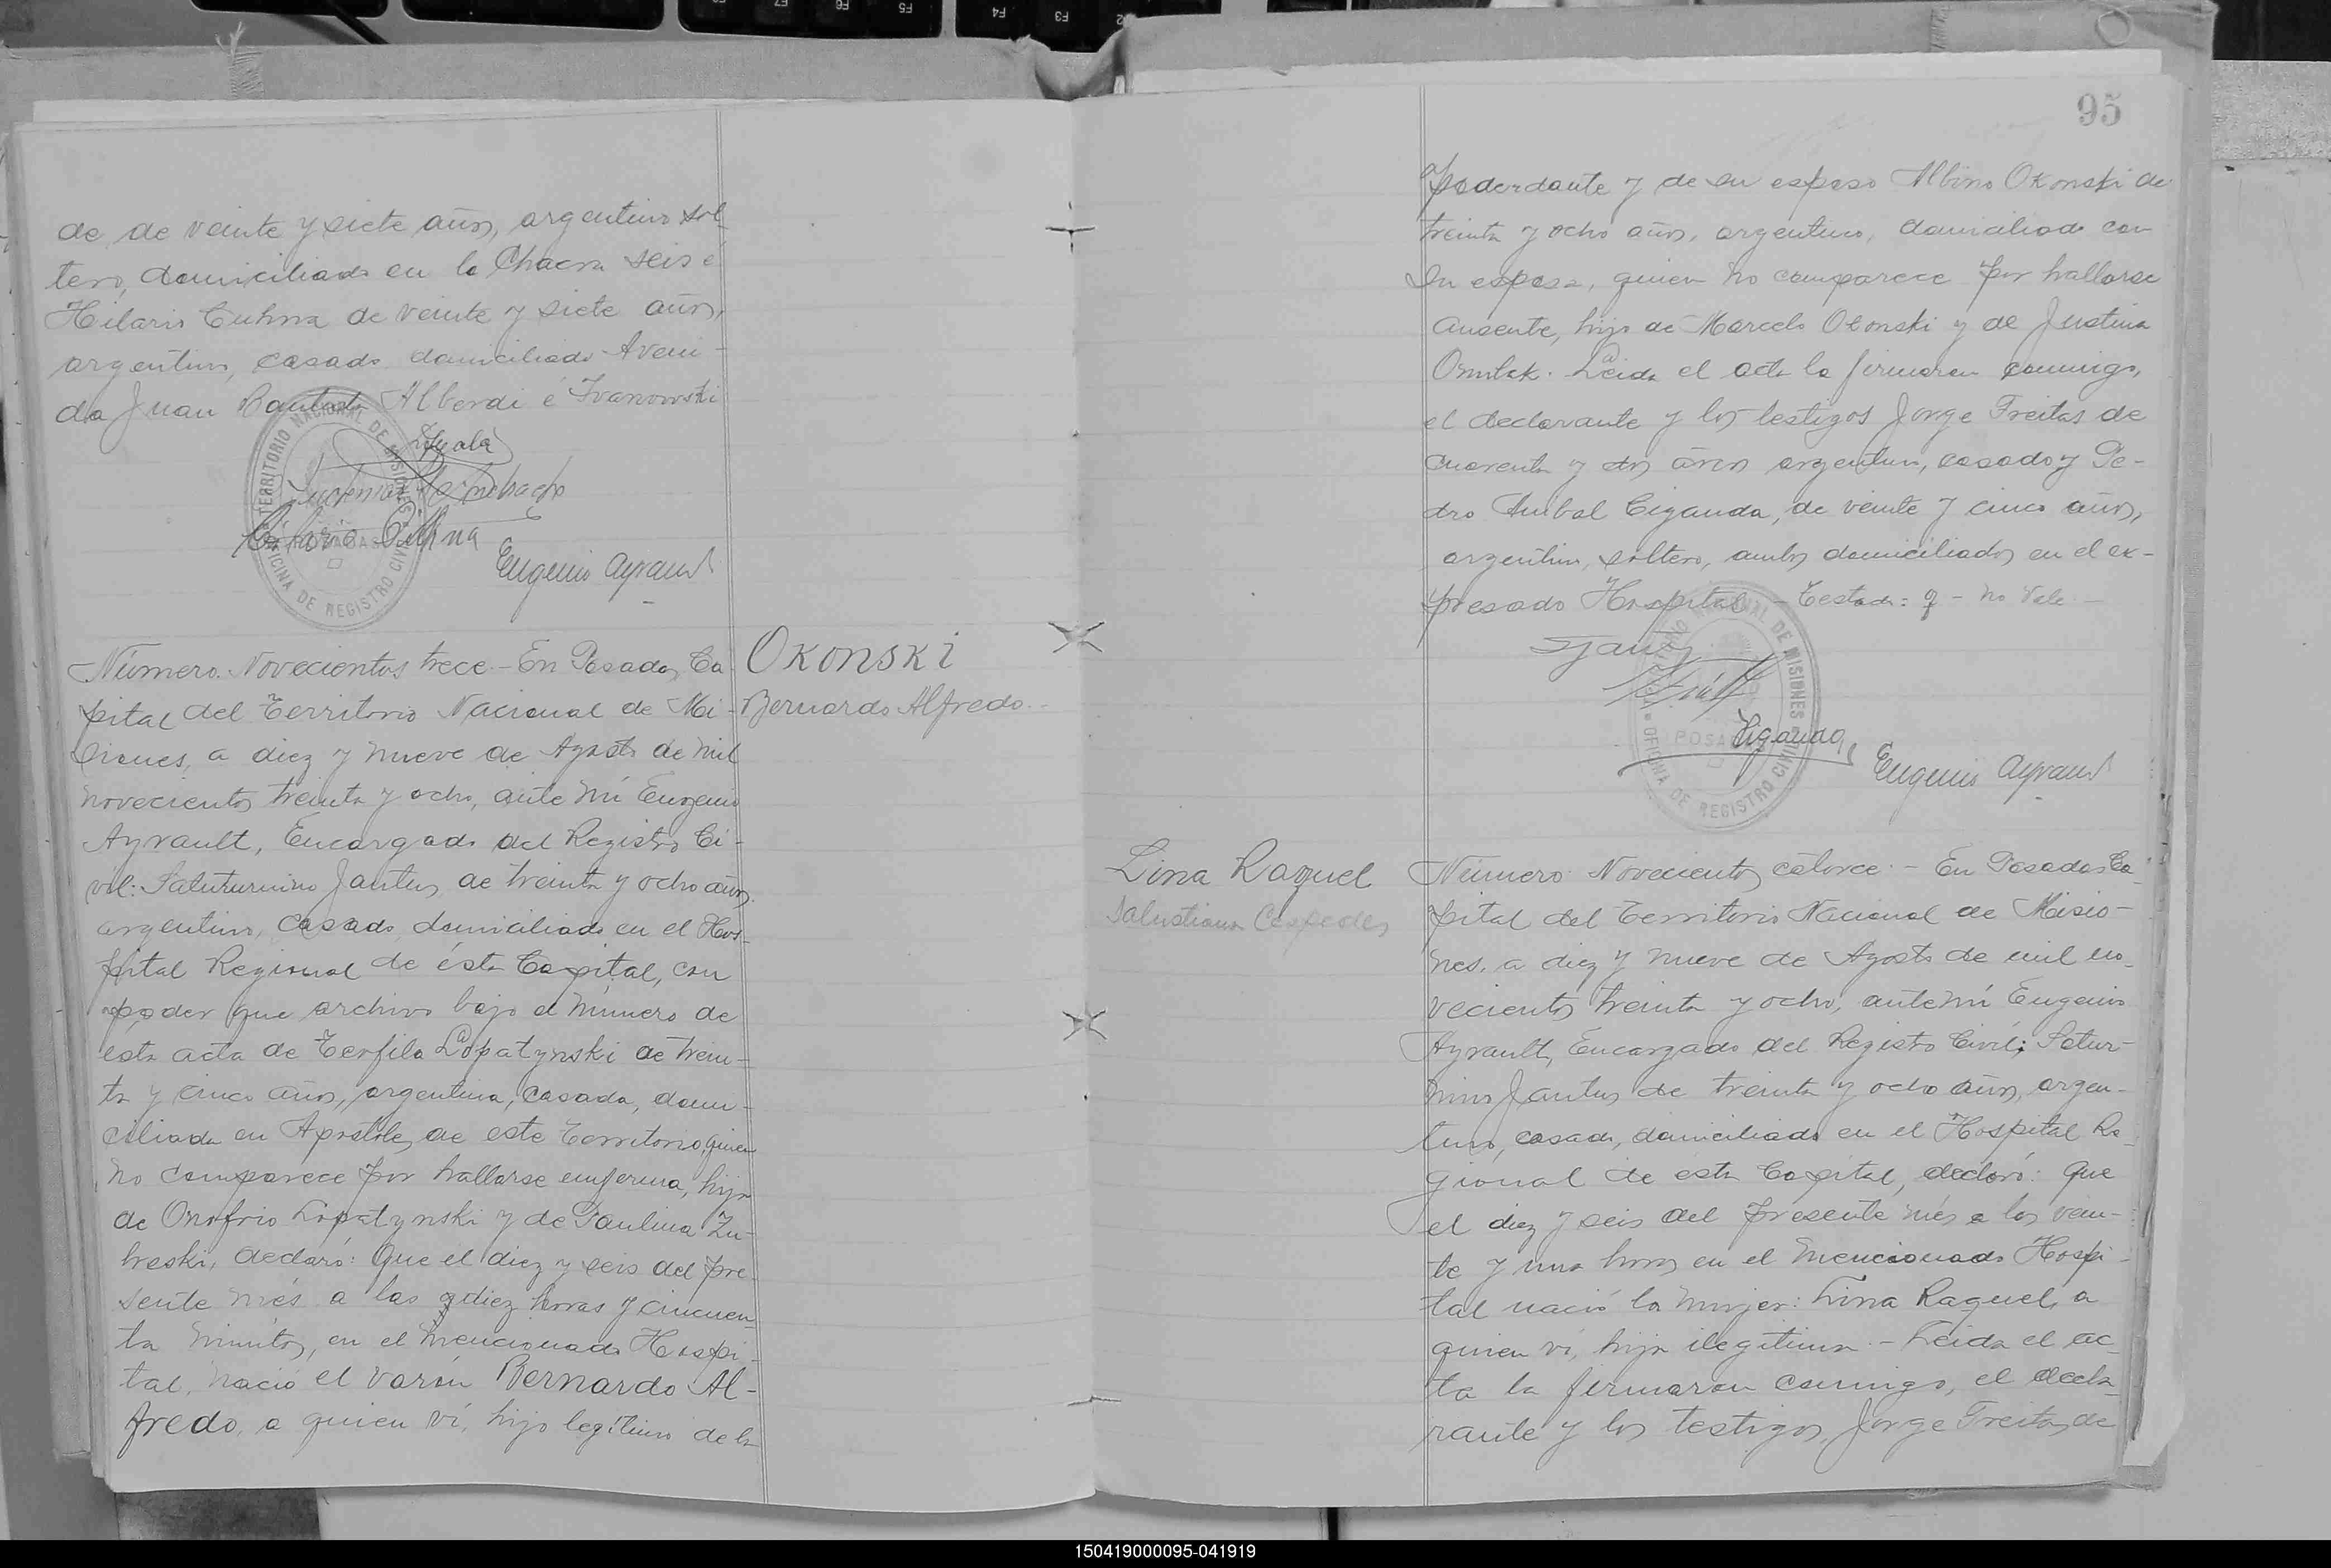 de de veinte y siete años, argentino sol
tero, domiciliado en la Chacra seis é
Hilario Cuhna de veinte y siete años,
argentino, casado domiciliado Aveni-
da Juan Bautista Alberdi é Ivanowski
Ayala
Eugenio Ayrault
TERRITORIO NACIONAL DE MISIONES
OFICINA DE REGISTRO CIVIL
POSADAS
Número. Novecientos trece.- En Posadas, Ca
pital del Territorio Nacional de Mi-
siones, a diez y nueve de Agosto de mil
novecientos treinta y ocho, ante mí Eugenio
Ayrault, Encargado del Registro Ci-
vil: Satururnino Jantus, de treinta y ocho años,
argentino, casado, domiciliado en el Hos-
pital Regional de ésta Capital, con
poder que archivo bajo el número de
esta acta de Teofila Lopatynski de trein-
ta y cinco años, argentina, casada, domi-
ciliada en Apóstoles, de este Territorio, quien
no comparece por hallarse enferma, hija
de Onofrio Lopatynski y de Paulina Zu-
breski, declaró: Que el diez y seis del pre-
sente més a las q diez horas y cincuen
ta minutos, en el mencionado Hospi-
tal, nació el varón Bernardo Al-
fredo, a quien ví, hijo legítimo de la
Okonski
Bernardo Alfredo.-
95
poderdante y de su esposo Albino Okonski de
treinta y ocho años, argentino, domiciliado con
su esposa, quien no comparece por hallarse
ausente, hijo de Marcelo Okonski y de Justina
Leida el acta la firmaron conmigo,
el declarante y los testigos Jorge Freitas de
cuarenta y dos años argentino, casado y Pe-
dro Anibal Ciganda, de veinte y cinco años,
argentino, soltero, ambos domiciliados en el ex-
presado Hospital - Testado: q - no Vale -
SJantus
Ciganda
Eugenio Ayrault
TERRITORIO NACIONAL DE MISIONES
OFICINA DE REGISTRO CIVIL
POSADAS
Lina Raquel
Salustiana Cespedes
Número. Novecientos catorce.- En Posadas Ca-
pital del Territorio Nacional de Misio-
nes, a diez y nueve de Agosto de mil no-
vecientos treinta y ocho, ante mí Eugenio
Ayrault, Encargado del Registro Civil; Satur-
nino Jantus de treinta y ocho años, argen-
tino, casado, domiciliado en el Hospital Re-
gional de ésta Capital, declaró: Que
el diez y seis del presente més a las vein-
te y una horas en el mencionado Hospi-
tal nació la mujer: Lina Raquel, a
quien ví, hija ilegítima.- Leida el ac-
ta la firmaron conmigo, el decla-
rante y los testigos, Jorge Freitas, de
150419000095-041919